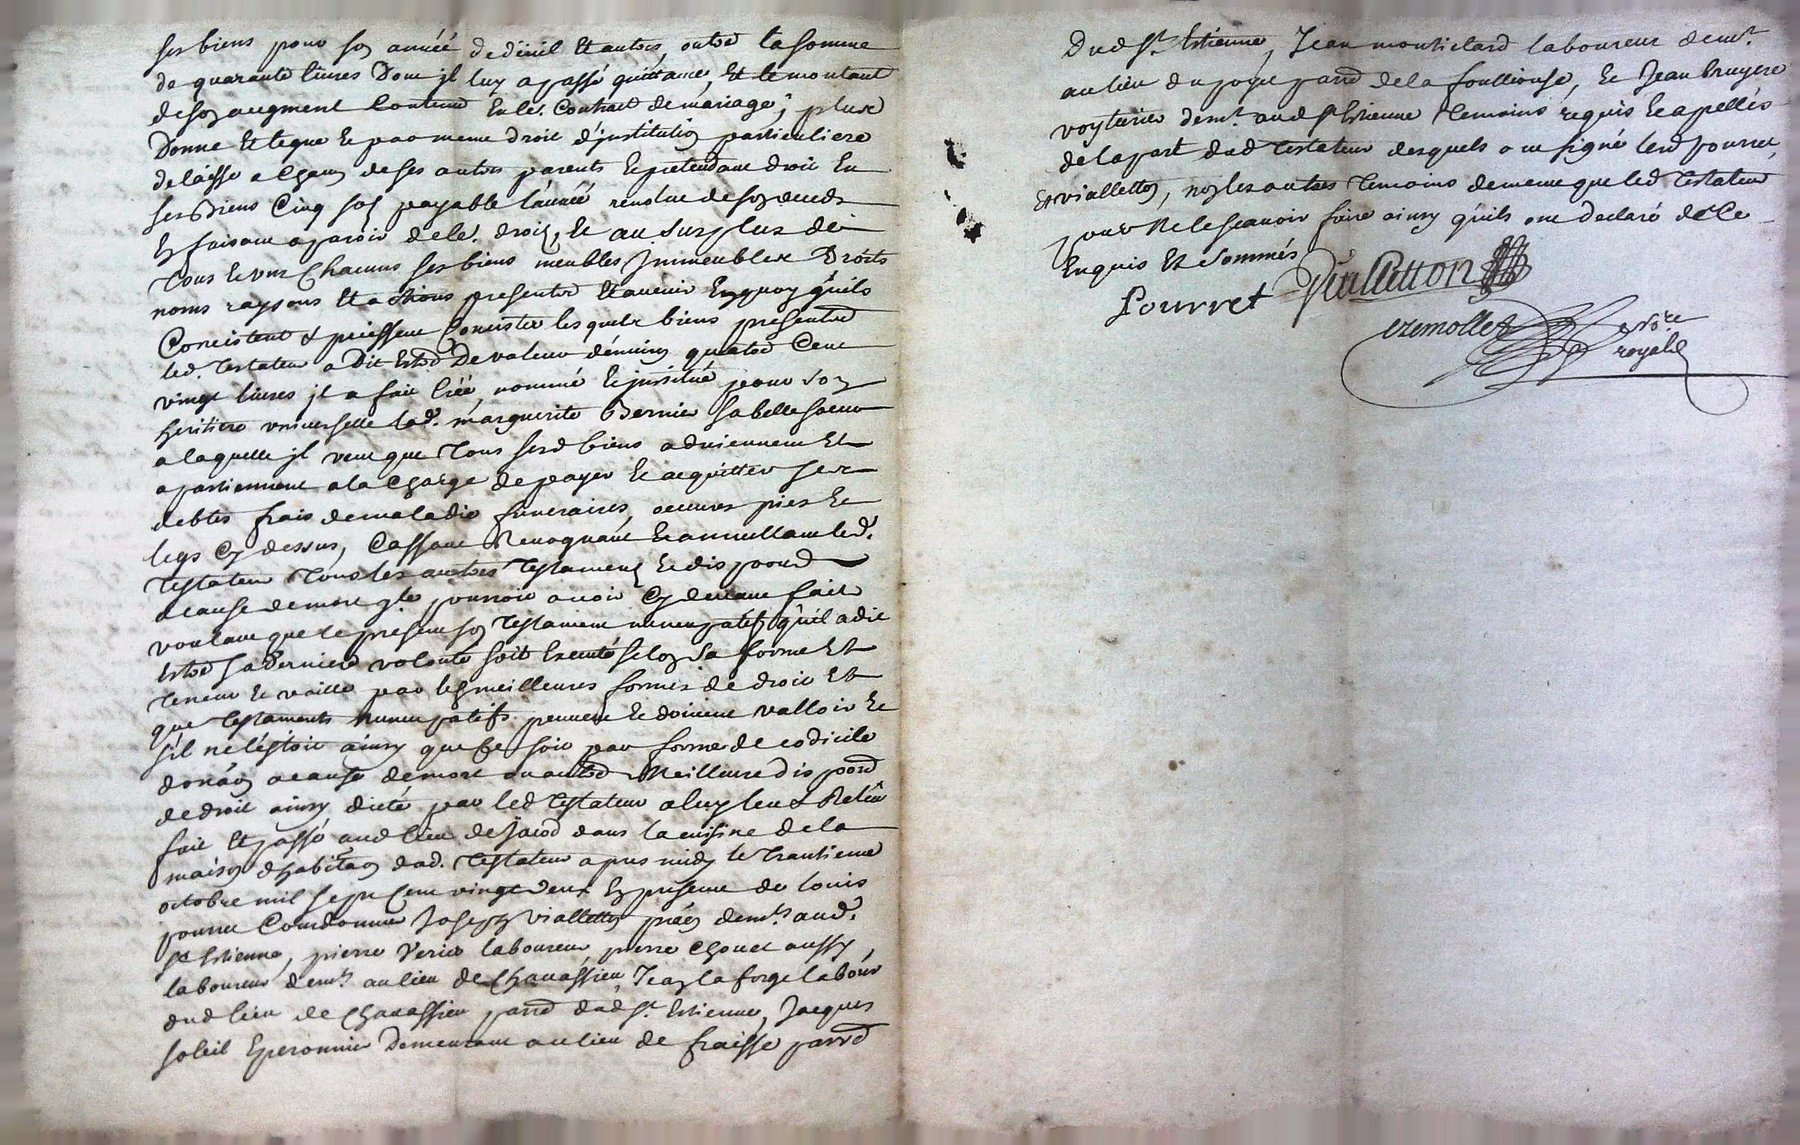 ses biens pour son année de deüil et autres, outre la somme
de quarante livres dont il luy a passé quittance, et le montant
de son augment contenu en led. contract de mariage; plus
donne et legue et par meme droit d'institution particuliere
delaisse a chacun de ses autres parents et pretendant droit en
ses biens cinq sols payable l'année revolue de son deceds
en faisant aparoir de led. droit, et au surplus de
tous et uns chacuns ses biens meubles immeubles droits
noms raysons et actions presents et avenir en quoy qu'ils
consistent et puissent consister lesquels biens presents
led. testateur a dit estre de valeur d'environ quatre cent
vingt livres il a fait créé, nommé et institué pour son
heritiere universelle lad. marguerite Bernier sa belle soeur
a laquelle il veut que tous sesd biens adviennent et
apartiennent a la charge de payer et acquitter ses
debtes frais de maladie funeraires, oeuvres pies et
legs cy dessus, cassant revoquant et annullant led.
testateur tous les autres testaments et dispoon
a cause de mort qle pourroit avoir cy devant fait
voulant que le present son testament nuncupatif qu'il a dit
estre sa derniere volonté soit executé selon sa forme et
teneur et vaille par les meilleures formes de droit et
que testaments nuncupatifs peuvent et doivent valloir et
sil ne l'estoit ainsy que ce soit par forme de codicile
donaon a cause de mort ou autre meilleure dispoon
de droit ainsy dicté par led testateur a luy leu et releu
fait et passé aud lieu de dans la cuisine de la
maison d'habitaon dud. testateur apres midy le trantieme
octobre mil sept cent vingt deux en presence de louis
pourret cordonnier Joseph vialletton demt aud.
st Estienne, pierre verier laboureur, pierre chouet aussy
laboureur demt au lieu de chavassieu, Jean laforge labour
dud lieu de chavassieu parro dud st. Estienne, Jacques
soleil eperonnier demeurant au lieu de fraisse parro
dud st. Estienne, Jean montelard laboureur demt.
au lieu du parro de la foullouse, et Jean bruyere
voyturier demt aud st Estienne temoins requis et apellés
de la part dud testateur desquels ont signé lesd pourret
et vialletton, non les autres temoins de meme que led testateur
pour ne le scavoir faire ainsy qu'ils ont declaré de ce
enquis et sommés
Pourret Vialletton
notre
royal